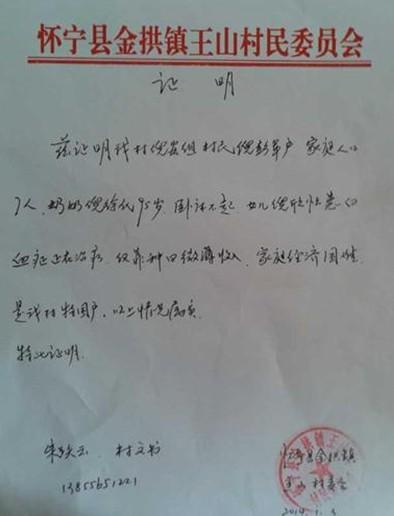 怀宁县金拱镇王山村民委员会
证 明
兹证明我村倪岩组村民倪彭军户 家庭人口
7人,奶奶倪徐氏95岁 卧床不起 女儿倪欣怡患白
血症正在治疗 仅靠种田微薄收入 家庭经济困难
是我村特困户,以上情况属实
特此证明.
村文书
13855651221
怀宁县金拱镇
王山村委会
2014.1.3